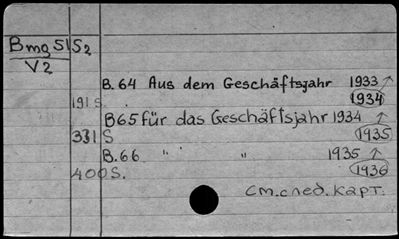 Bmg 51 S2
V2
B. 64 Aus dem Geschäftsjahr 1933 ↗
191 S. 1934
B65 für das Geschäftsjahr 1934 ↗
331 S 1935
B. 66 " " 1935 ↗
400 S. 1936
см. след. карт.